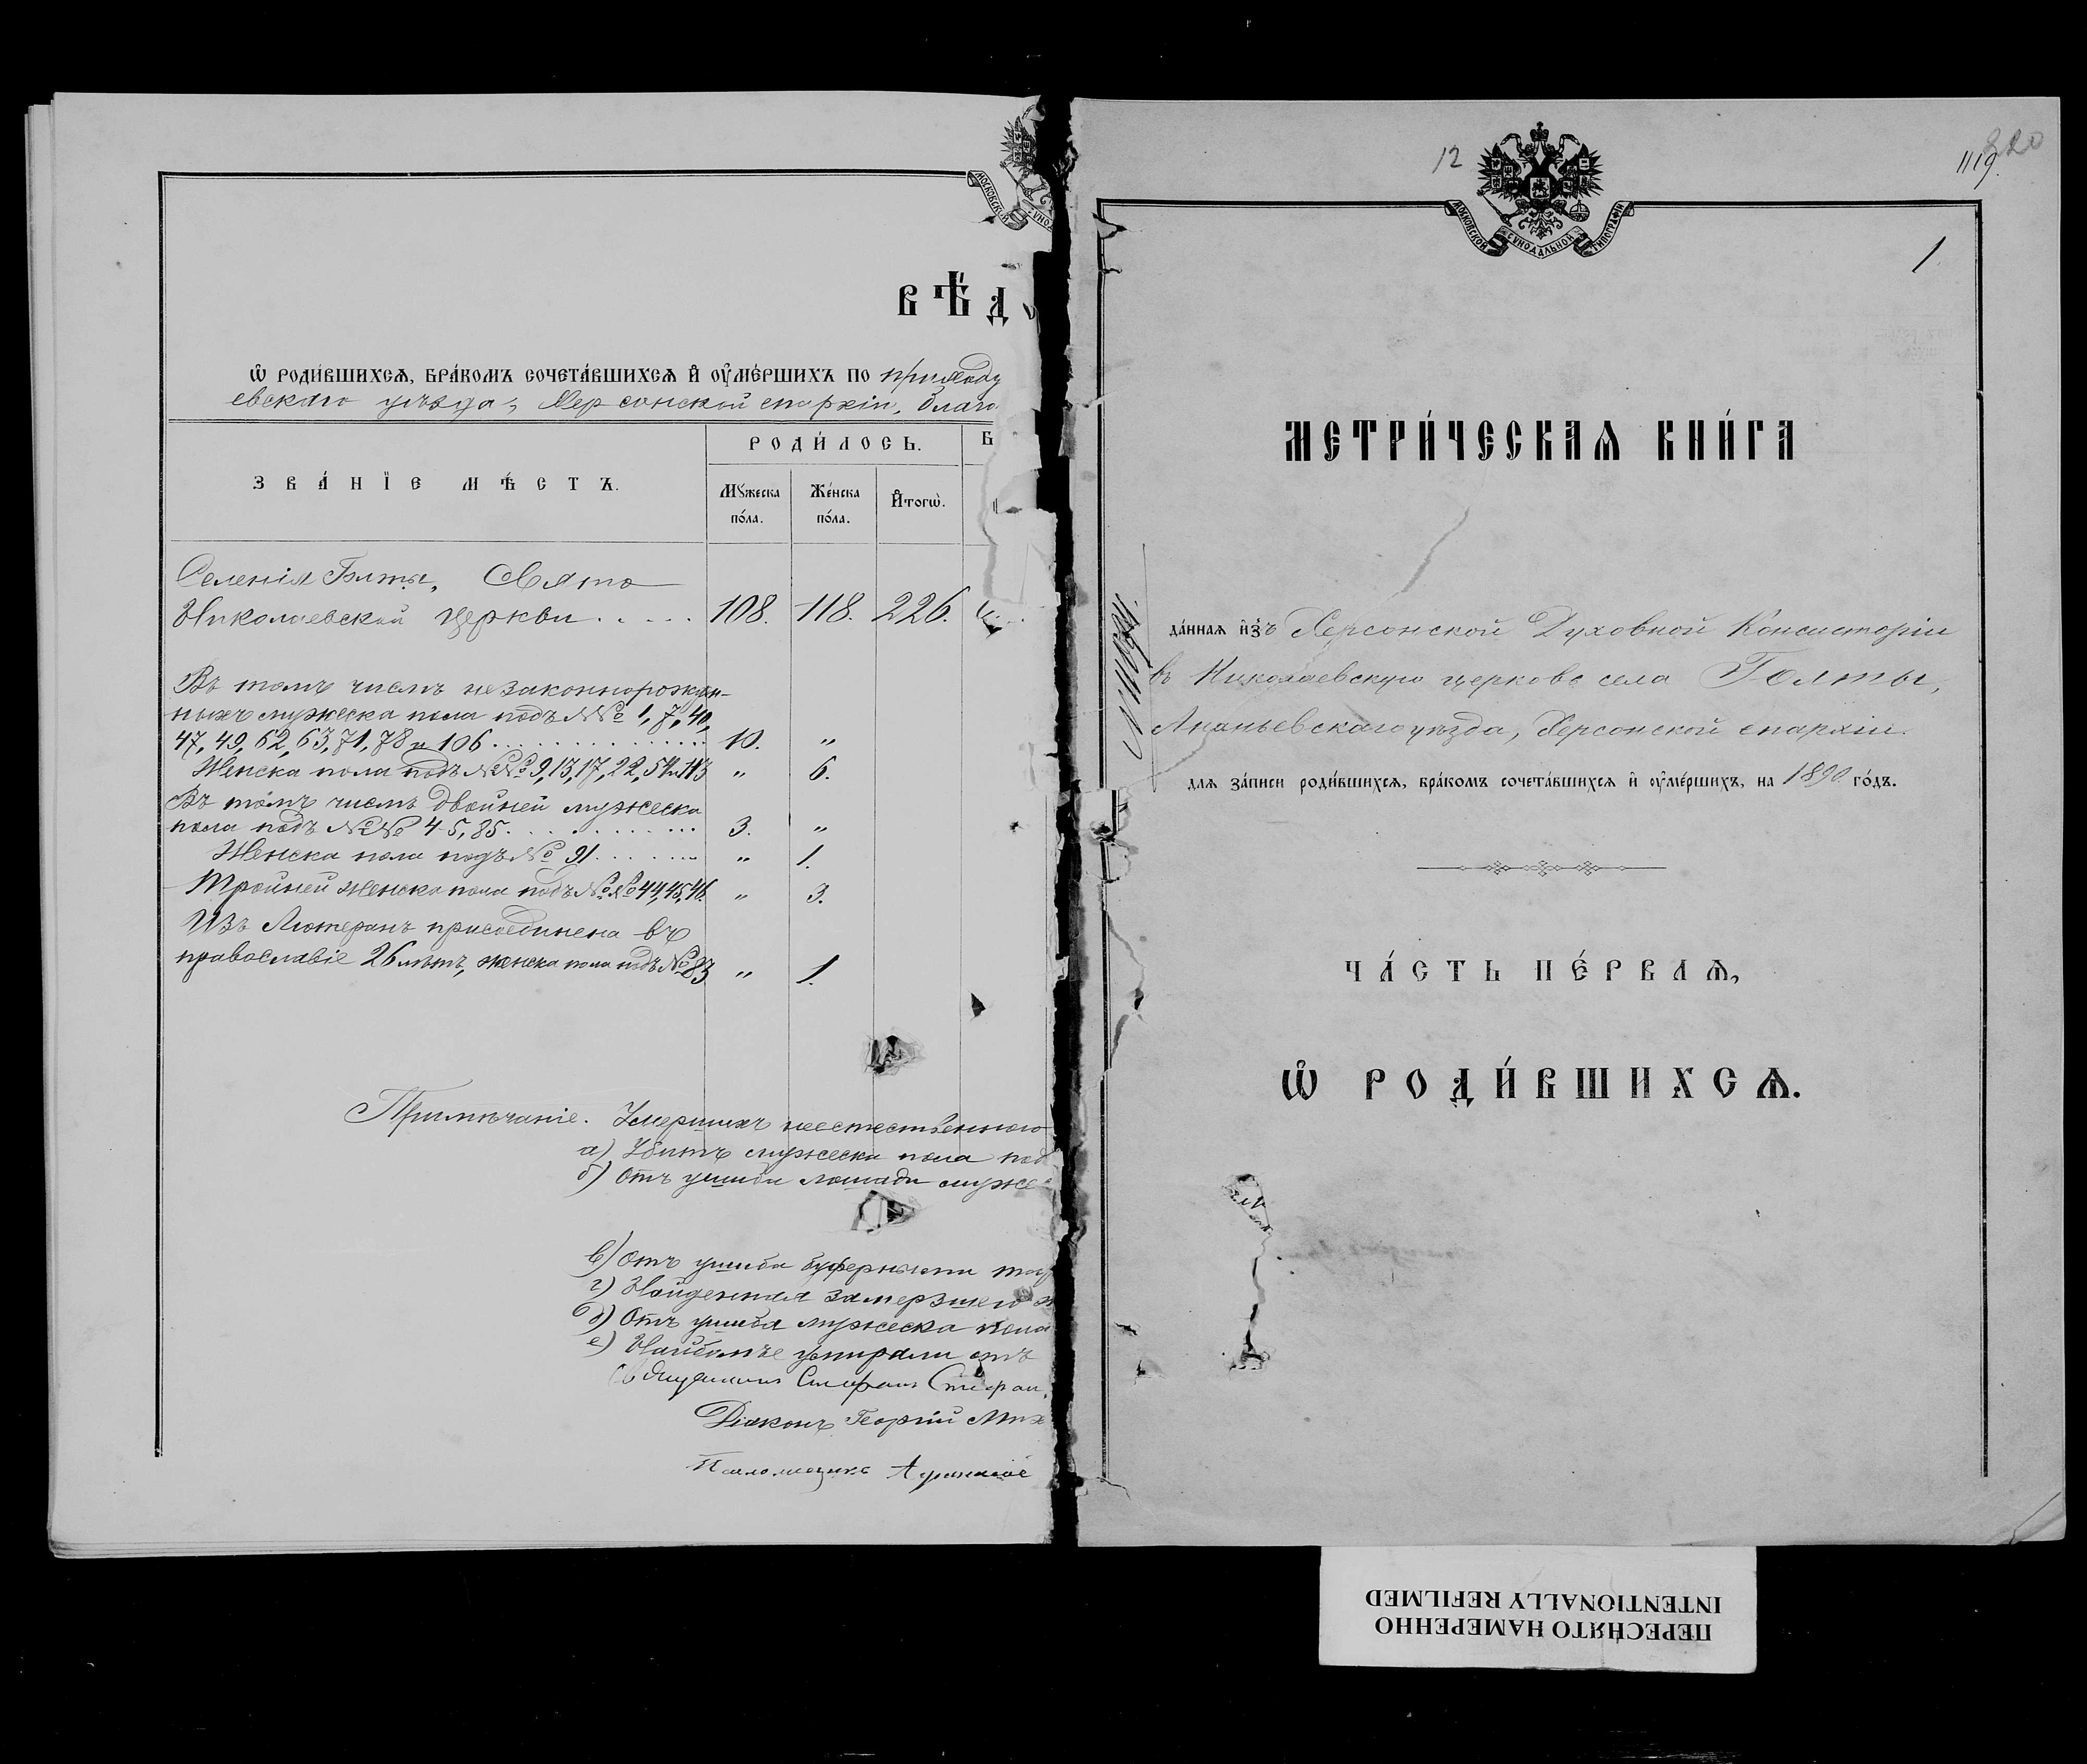 ВѢД
Ѡ РОДИ́ВШИХСѦ, БРА́КОМЪ СОЧЕТА́ВШИХСѦ И҆ ОУ҆МЕ́РШИХЪ ПО приходу
евскаго уѣзда, Херсонской епархіи, благо
ЗВА́НЇЕ МѢ́СТЪ.
РОДИ́ЛОСЬ.
Б
Мꙋжеска по́ла.
Же́нска по́ла.
И҆тогѡ̀.
Селенія Голты, Свято
Николаевской церкви . . . . 108. 118. 226.
Въ томъ числѣ незаконнорожден-
ныхъ мужеска пола подъ №№ 1, 7, 40,
47, 49, 62, 63, 71, 78 и 106 . . . . . 10. „
Женска пола подъ №№ 9, 13, 17, 22, 54 и 113 „ 6.
Въ томъ числѣ двойней мужеска
пола подъ №№ 4-5, 85. . . . . . 3. „
Женска пола подъ № 91 . . . . . „ 1.
Тройней женска пола подъ №№ 44, 45, 46. „ 3.
Изъ Лютеранъ присоединена въ
православіе 26 лѣтъ, женска пола подъ № 83 „ 1.
Примѣчаніе. Умершихъ неестественною
а) Убитъ мужеска пола под
б) Отъ ушиба лошади муже
в) Отъ ушиба буферными
г) Найденная замерзшею
д) Отъ ушиба мужеска пола
е) Наиболѣе умирали отъ
Священникъ Стефанъ Стефан
Діаконъ Георгій Мих
Псаломщикъ Афанасій
12
1119.
220
МОСКОВСКОЙ СѴНОДАЛЬНОЙ ТИПОГРАФІИ
1
МЕТРИ́ЧЕСКАѦ КНИ́ГА
да́ннаѧ и҆зъ Херсонской Духовной Консисторіи
въ Николаевскую церковь села Голты,
Ананьевскаго уѣзда, Херсонской епархіи.
длѧ за́писи роди́вшихсѧ, бра́комъ сочета́вшихсѧ и҆ оу҆ме́ршихъ, на 1890 го́дъ.
ЧА́СТЬ ПЕ́РВАѦ,
Ѡ РОДИ́ВШИХСѦ.
ПЕРЕСНЯТО НАМЕРЕННО
INTENTIONALLY REFILMED